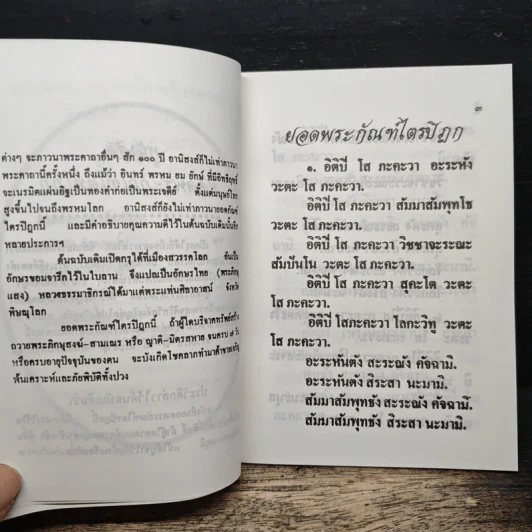 ต่างๆ จะภาวนาพระคาถาอื่นๆ สัก ๑๐๐ ปี อานิสงส์ก็ไม่เท่าภาวนา
พระคาถานี้ครั้งหนึ่ง ถึงแม้ว่า อินทร์ พรหม ยม ยักษ์ ที่มีอิทธิฤทธิ์
จะเนรมิตแผ่นอิฐเป็นทองคำก่อเป็นพระเจดีย์ ตั้งแต่มนุษย์โลก
สูงขึ้นไปจนถึงพรหมโลก อานิสงส์ก็ยังไม่เท่าภาวนายอดกัณฑ์
ไตรปิฎกนี้ และมีคำอธิบายคุณความดีไว้ในต้นฉบับเดิมนั้นอีก
หลายประการฯ
ต้นฉบับเดิมเปิดกรุได้ที่เมืองสวรรคโลก อันเป็น
อักษรขอมจารึกไว้ในใบลาน จึงแปลเป็นอักษรไทย (พระภิกษุ
แสง) หลวงธรรมาธิกรณ์ได้มาแต่พระแท่นศิลาอาสน์ จังหวัด
พิษณุโลก
ยอดพระกัณฑ์ไตรปิฎกนี้ ถ้าผู้ใดบริจาคทรัพย์สร้าง
ถวายพระภิกษุสงฆ์-สามเณร หรือ ญาติ-มิตรสหาย จนครบ ๗ วัน
หรือครบอายุปัจจุบันของตน จะบังเกิดโชคลาภทำมาค้าขายเจริญ
พ้นเคราะห์และภัยพิบัติทั้งปวง
๓
ยอดพระกัณฑ์ไตรปิฎก
๑. อิติปิ โส ภะคะวา อะระหัง
วะตะ โส ภะคะวา.
อิติปิ โส ภะคะวา สัมมาสัมพุทโธ
วะตะ โส ภะคะวา.
อิติปิ โส ภะคะวา วิชชาจะระณะ
สัมปันโน วะตะ โส ภะคะวา.
อิติปิ โส ภะคะวา สุคะโต วะตะ
โส ภะคะวา.
อิติปิ โสภะคะวา โลกะวิทู วะตะ
โส ภะคะวา.
อะระหันตัง สะระณัง คัจฉามิ.
อะระหันตัง สิระสา นะมามิ.
สัมมาสัมพุทธัง สะระณัง คัจฉามิ.
สัมมาสัมพุทธัง สิระสา นะมามิ.